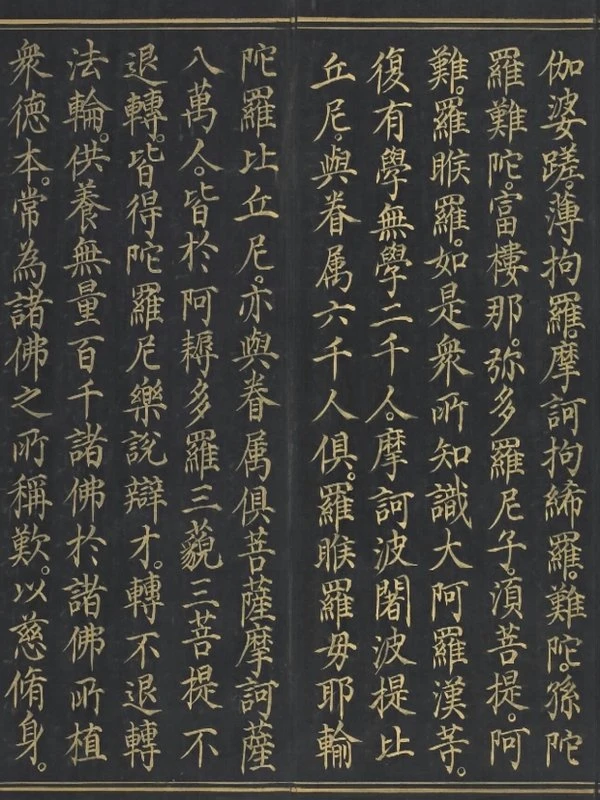 伽婆蹉。薄拘羅摩訶拘絺羅。難陀。孫陀
羅難陀。富樓那。弥多羅尼子。湏菩提。阿
難。羅睺羅。如是衆所知識大阿羅漢等。
復有學無學二千人。摩訶波闍波提比
丘尼。與眷属六千人俱。羅睺羅毋耶輸
陀羅比丘尼。亦與眷属俱菩薩摩訶薩
八萬人。皆於阿耨多羅三藐三菩提不
退轉。皆得陀羅尼樂說辯才。轉不退轉
法輪。供養無量百千諸佛於諸佛所植
衆德本。常為諸佛之所稱歎。以慈脩身。